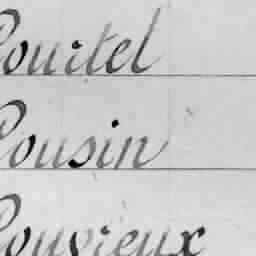 Courtel
Cousin
Couvreux